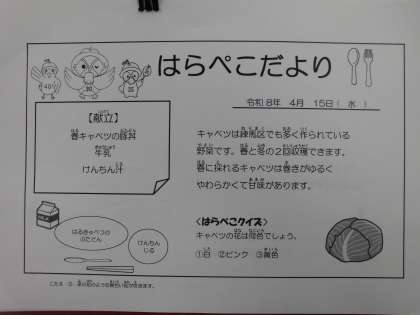 はらぺこだより
令和8年 4月 15日( 水 )
【献立】
春キャベツの豚丼
牛乳
けんちん汁
キャベツは練馬区でも多く作られている
野菜です。春と冬の2回収穫できます。
春に採れるキャベツは巻きがゆるく
やわらかくて甘味があります。
はるきゃべつの
ぶたどん
けんちん
じる
<はらぺこクイズ>
キャベツの花は何色でしょう。
①白 ②ピンク ③黄色